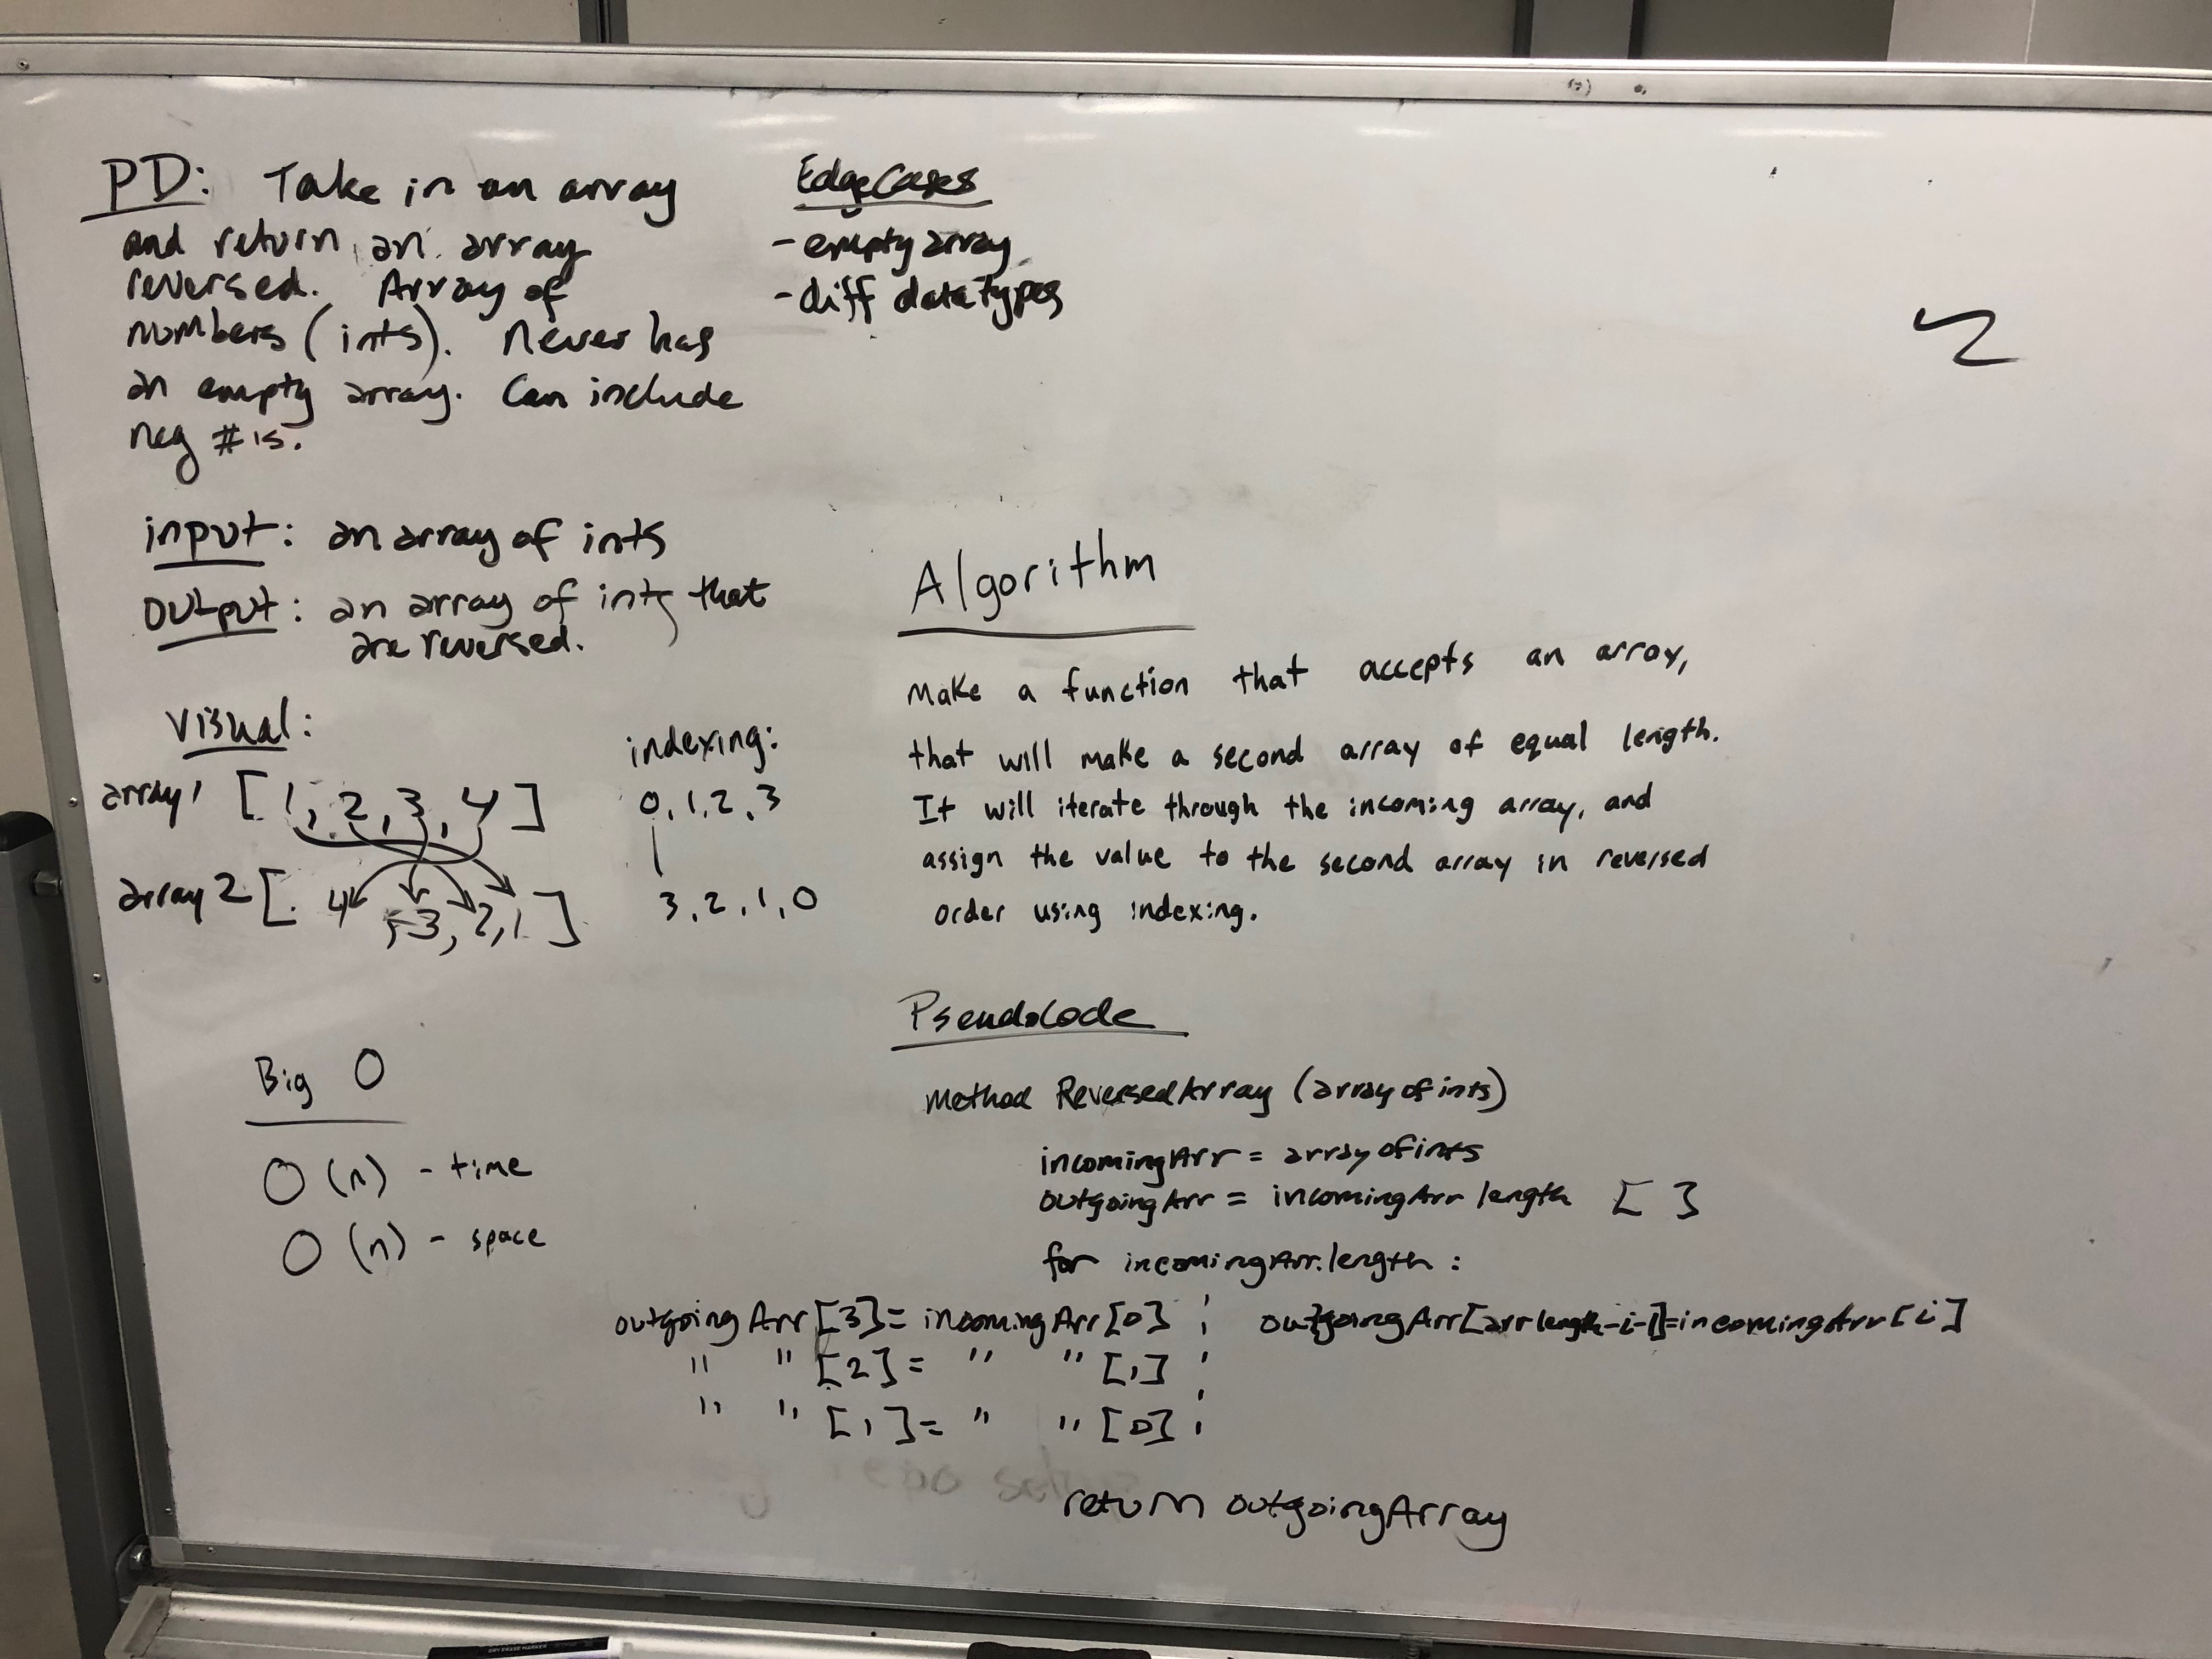 PD: Take in an array
and return an array
reversed. Array of
numbers (ints). Never has
an empty array. Can include
neg #'s.
EdgeCases
- empty array
- diff data types
input: an array of ints
output: an array of ints that
are reversed.
Visual:
array1 [1, 2, 3, 4]
array2 [ 4, 3, 2, 1 ]
indexing:
0, 1, 2, 3
3, 2, 1, 0
Big O
O(n) - time
O(n) - space
Algorithm
Make a function that accepts an array,
that will make a second array of equal length.
It will iterate through the incoming array, and
assign the value to the second array in reversed
order using indexing.
Pseudocode
Method ReversedArray (arrayofints)
incomingArr = arrayofints
outgoingArr = incomingArr length [ ]
for incomingArr.length :
outgoingArr[3] = incomingArr[0] ; outgoingArr[arrlength-i-1]=incomingArr[i]
" " [2] = " " [1] ;
" " [1] = " " [0] ;
return outgoingArray